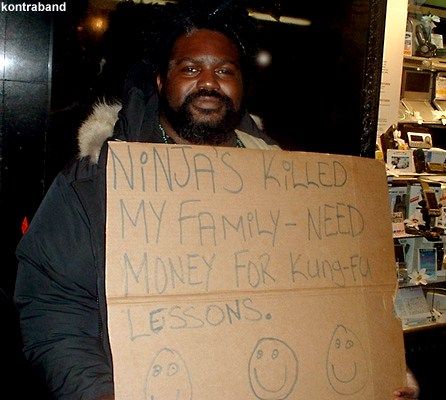 kontraband
NiNJA'S KiLLED
MY FAMiLY - NEED
MONEY FOR KUNG-FU
LESSONS.